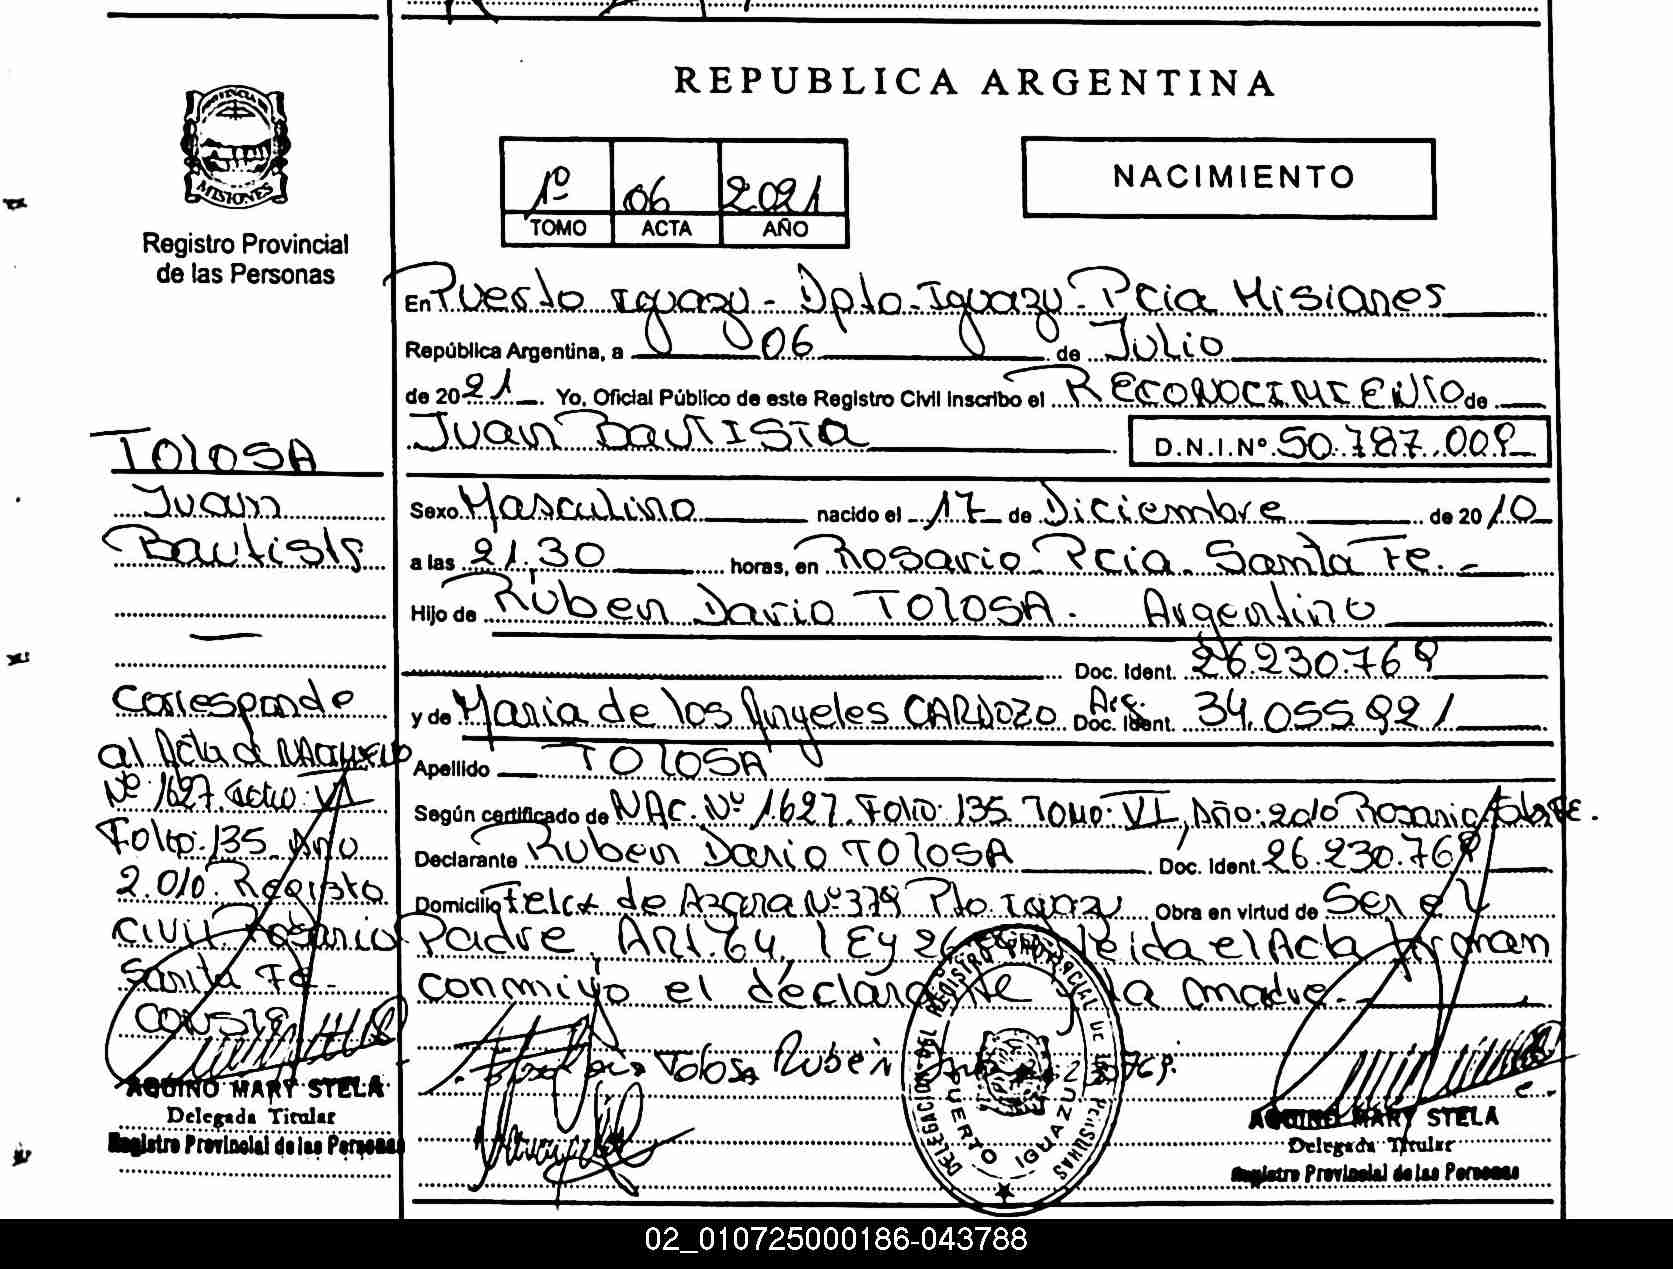 REPUBLICA ARGENTINA
PROVINCIA DE
MISIONES
Registro Provincial
de las Personas
1º 06 2021
TOMO ACTA AÑO
NACIMIENTO
En Puerto Iguazu - Dpto. Iguazu - Pcia Misiones
República Argentina, a 06 de Julio
de 2021. Yo, Oficial Público de este Registro Civil Inscribo el RECONOCIMIENTO de
Juan Bautista D.N.I.Nº 50.787.009
Sexo Masculino nacido el 17 de Diciembre de 2010
a las 21.30 horas, en Rosario - Pcia. Santa Fe. -
Hijo de Ruben Dario TOLOSA. Argentino
Doc. Ident. 26.230.769
y de Maria de los Angeles CARDOZO Arg. Doc. Ident. 34.055.921
Apellido TOLOSA
Según certificado de NAC. Nº 1.627. Folio: 135 Tomo: VI, Año: 2010 Rosario
Declarante Ruben Dario TOLOSA Doc. Ident. 26.230.769
Domicilio Felix de Azara Nº 379 Pto. Iguazu Obra en virtud de Ser el
Padre Art. 64, Ley 26 Leida el Acta firman
conmigo el declarante la madre. -
Tolosa Ruben
TOLOSA
Juan
Bautista
Corresponde
al Acta de
Nº 1627 VI
Folio: 135 Año
2.010. Registro
Civil Rosario
Santa Fe -
CONSTE
AQUINO MARY STELA
Delegada Titular
Registro Provincial de las Personas
DELEGACION DEL REGISTRO PROVINCIAL DE LAS PERSONAS
PUERTO IGUAZU
AQUINO MARY STELA
Delegada Titular
Registro Provincial de las Personas
02_010725000186-043788